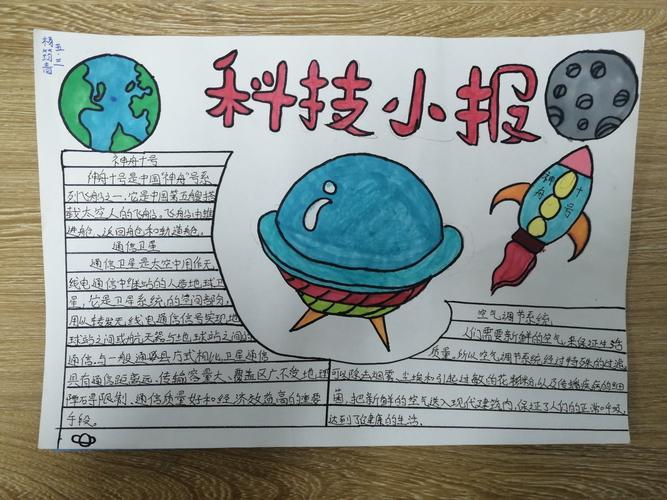 科技小报
五·二
杨
神舟十号
神舟十号是中国“神舟”号系
列飞船之一,它是中国第五艘搭
载太空人的飞船。飞船由推
进舱、返回舱和轨道舱。
通信卫星
通信卫星是太空中用作无
线电通信中继站的人造地球卫
星,它是卫星系统的空间部分,
用以转发无线电通信信号实现地
球站之间或航天器与地球站之间的
通信。与一般通信方式相比,卫星通信
具有通信距离远、传输容量大、覆盖区广不受地理
障碍限制、通信质量好和经济效益高的重要
手段。
神舟十号
空气调节系统
人们需要新鲜的空气来保证生活
质量,所以空气调节系统经过特殊的过滤,
可以除去烟雾、尘埃和引起过敏的花粉粒,以及传播疾病的细
菌,把新鲜的空气送入现代建筑内,保证了人们的正常呼吸,
达到了健康的生活。